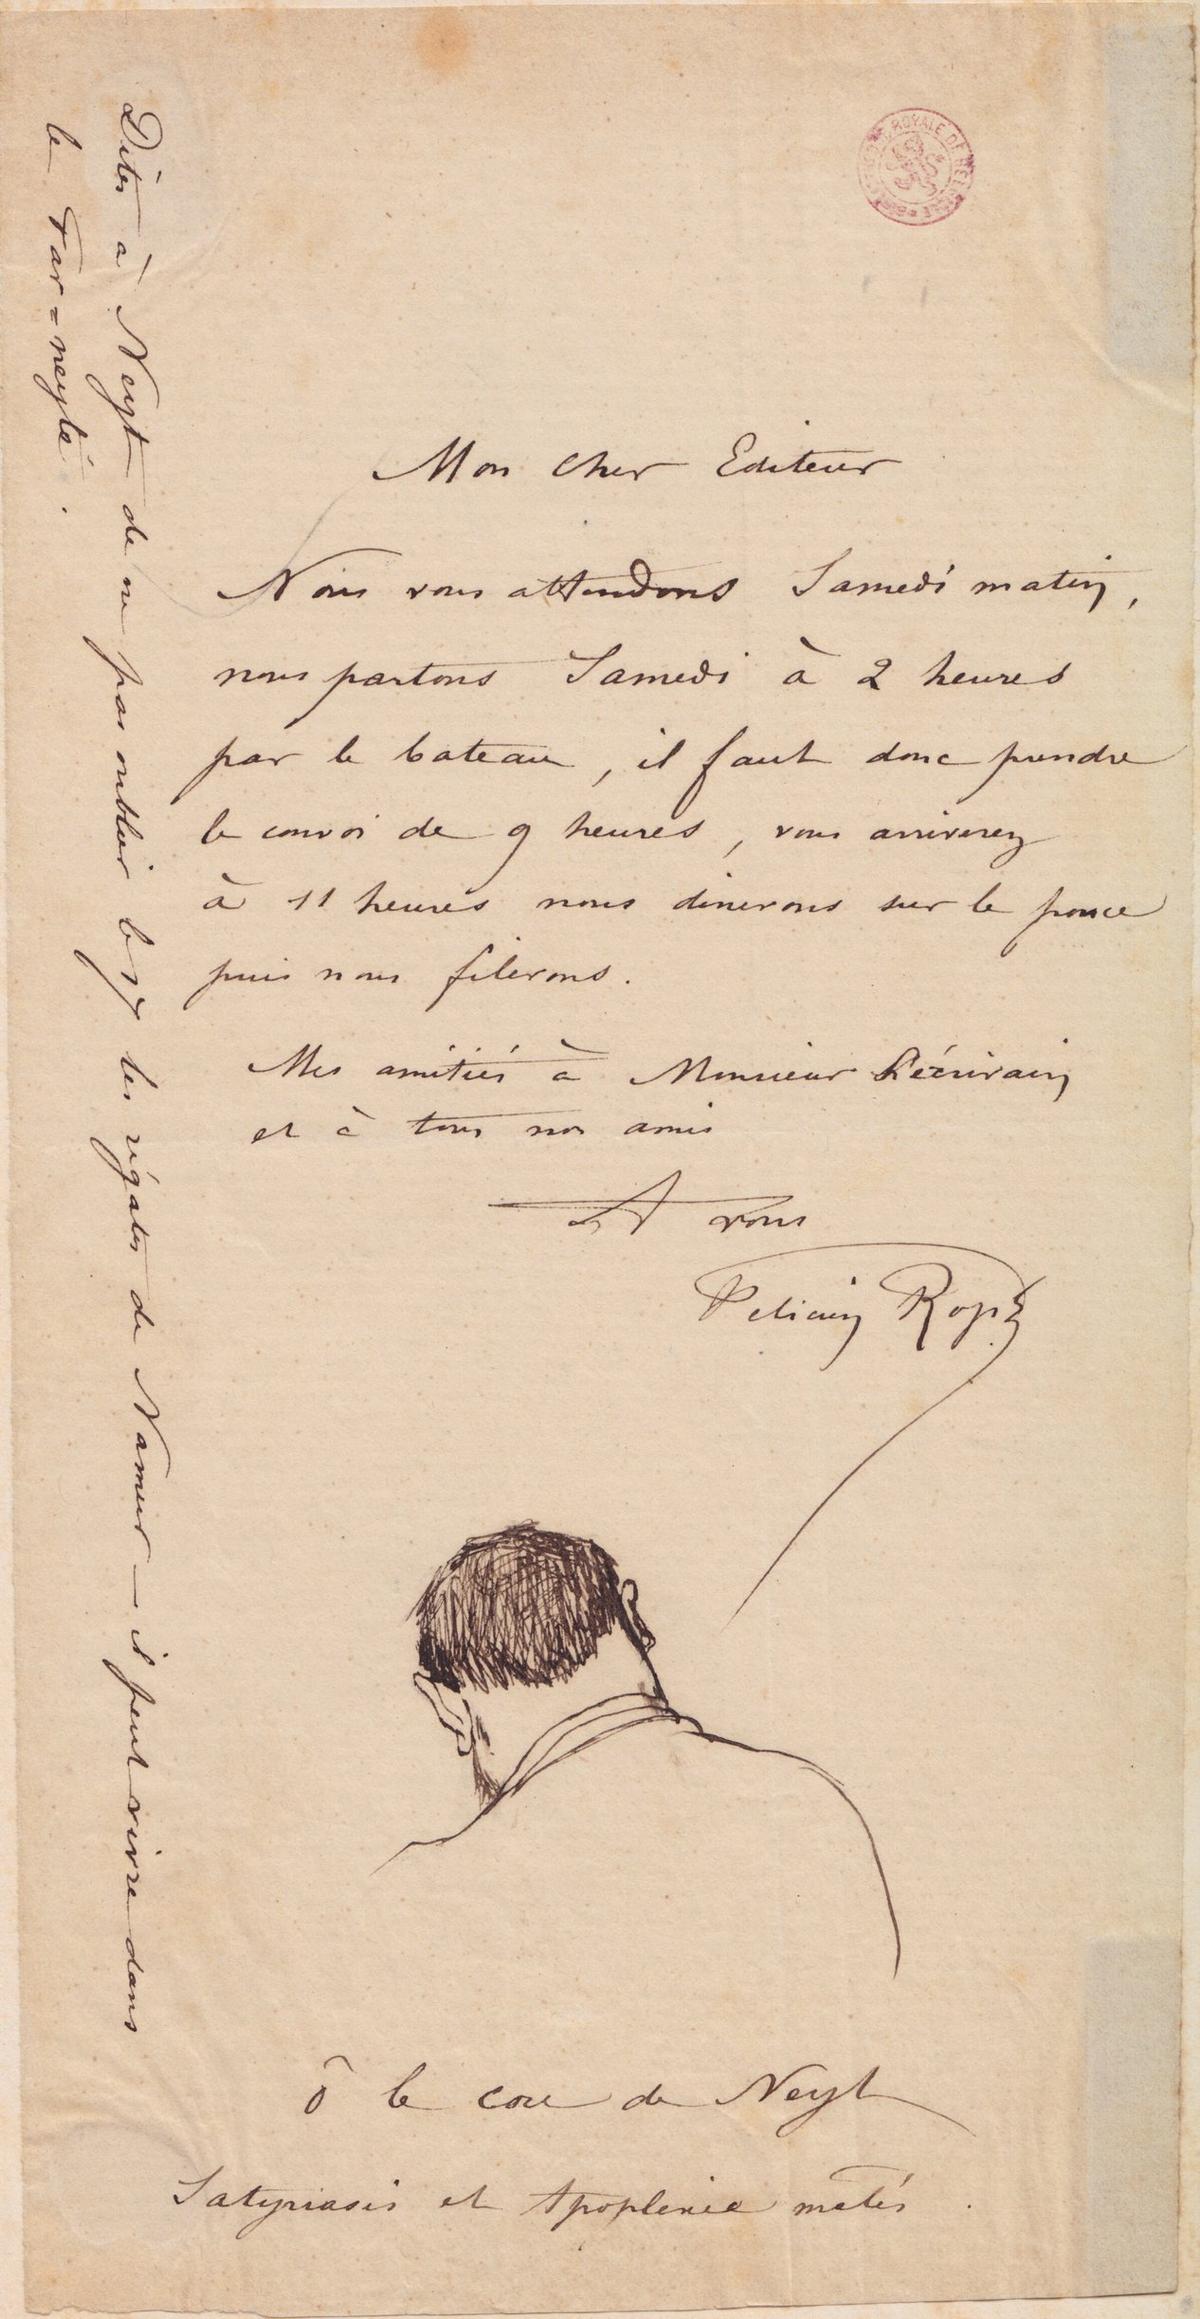 Mon cher Editeur
Nous vous attendons Samedi matin,
nous partons Samedi à 2 heures
par le bateau, il faut donc prendre
le convoi de 9 heures, vous arriverez
à 11 heures nous dinerons sur le pouce
puis nous filerons.
Mes amitiés à Monsieur Lécrivain
et à tous nos amis
A vous
Félicien Rops
ô le cou de Neyt
Satyriasis et Apoplexie mêlés.
Dites à Neyt de ne pas oublier le 17 les régates de Namur — il peut vivre dans
le Far=neyté.